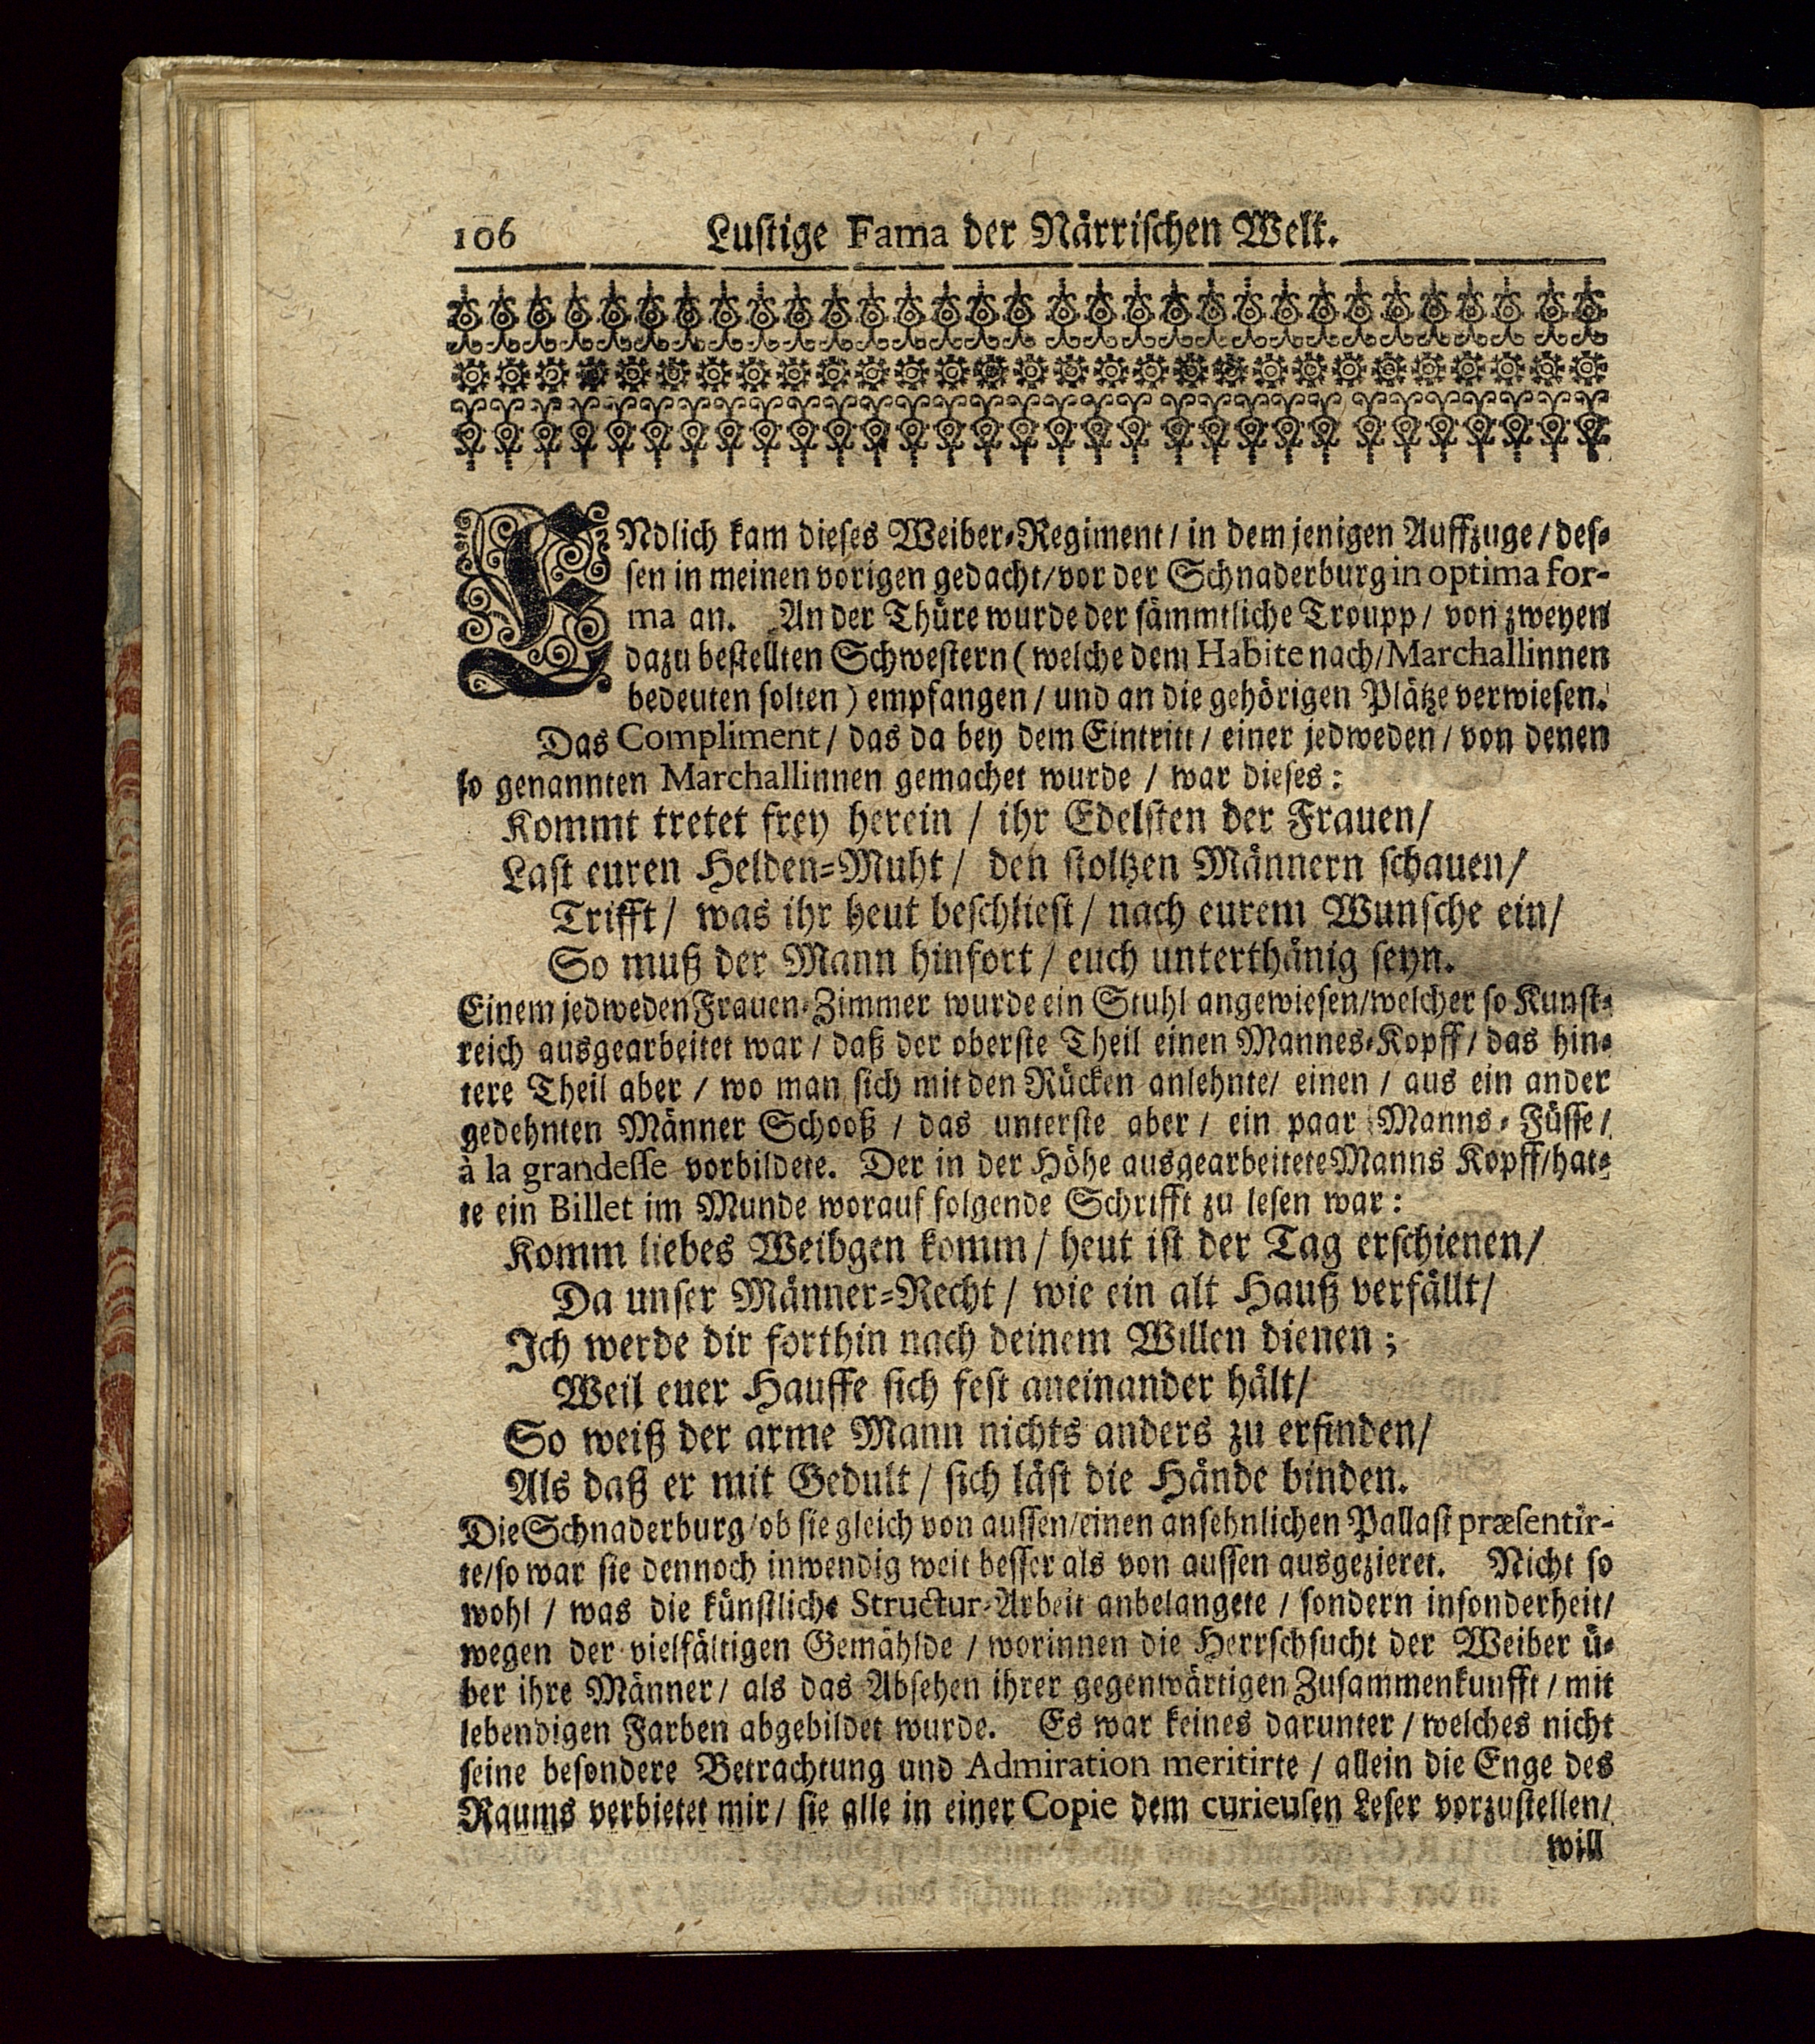 106 Lustige Fama der Närrischen Welt.
ENdlich kam dieses Weiber-Regiment / in dem jenigen Auffzuge / des-
sen in meinen vorigen gedacht / vor der Schnaderburg in optima for-
ma an. An der Thüre wurde der sämmtliche Troupp / von zweyen
dazu bestellten Schwestern ( welche dem Habite nach / Marchallinnen
bedeuten solten ) empfangen / und an die gehörigen Plätze verwiesen.
Das Compliment / das da bey dem Eintritt / einer jedweden / von denen
so genannten Marchallinnen gemachet wurde / war dieses:
Kommt tretet frey herein / ihr Edelsten der Frauen /
Last euren Helden-Muht / den stoltzen Männern schauen /
Trifft / was ihr heut beschliest / nach eurem Wunsche ein /
So muß der Mann hinfort / euch unterthänig seyn.
Einem jedweden Frauen-Zimmer wurde ein Stuhl angewiesen / welcher so Kunst-
reich ausgearbeitet war / daß der oberste Theil einen Mannes-Kopff / das hin-
tere Theil aber / wo man sich mit den Rücken anlehnte / einen / aus ein ander
gedehnten Männer Schooß / das unterste aber / ein paar Manns-Füsse /
à la grandesse vorbildete. Der in der Höhe ausgearbeitete Manns Kopff / hat-
te ein Billet im Munde worauf folgende Schrifft zu lesen war:
Komm liebes Weibgen komm / heut ist der Tag erschienen /
Da unser Männer-Recht / wie ein alt Hauß verfällt /
Ich werde dir forthin nach deinem Willen dienen;
Weil euer Hauffe sich fest aneinander hält /
So weiß der arme Mann nichts anders zu erfinden /
Als daß er mit Gedult / sich läst die Hände binden.
Die Schnaderburg / ob sie gleich von aussen / einen ansehnlichen Pallast præsentir-
te / so war sie dennoch inwendig weit besser als von aussen ausgezieret. Nicht so
wohl / was die künstliche Structur-Arbeit anbelangete / sondern insonderheit /
wegen der vielfältigen Gemählde / worinnen die Herrschsucht der Weiber ü-
ber ihre Männer / als das Absehen ihrer gegenwärtigen Zusammenkunfft / mit
lebendigen Farben abgebildet wurde. Es war keines darunter / welches nicht
seine besondere Betrachtung und Admiration meritirte / allein die Enge des
Raums verbietet mir / sie alle in einer Copie dem curieusen Leser vorzustellen /
will